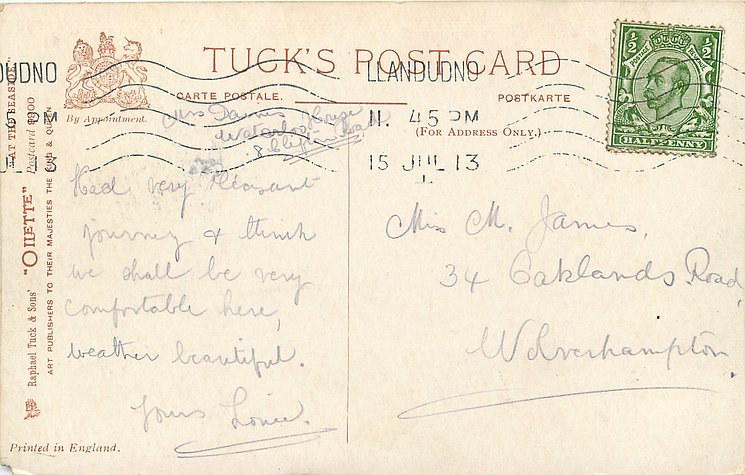 TUCK'S POST CARD
CARTE POSTALE.
POSTKARTE
(FOR ADDRESS ONLY.)
By Appointment.
LLANDUDNO
11. 45 PM
15 JUL 13
½ ½
POSTAGE
HALFPENNY
Mrs James
Waterloo House
8 Clifton
Had very pleasant
journey & think
we shall be very
comfortable here,
weather beautiful.
Yours Louie.
Miss M. James,
34 Oaklands Road
Wolverhampton.
"AT THE SEASIDE"
Postcard
Raphael Tuck & Sons' "OILETTE"
ART PUBLISHERS TO THEIR MAJESTIES THE KING & QUEEN
Printed in England.